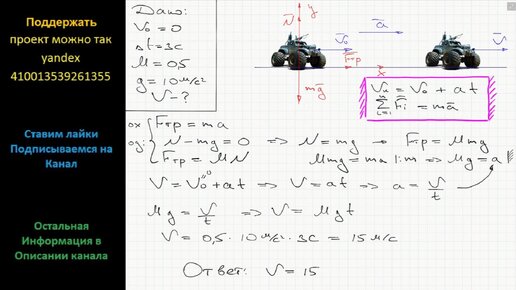 Поддержать
проект можно так
yandex
410013539261355
Ставим лайки
Подписываемся на
Канал
Остальная
Информация в
Описании канала
Дано:
V₀ = 0
Δt = 3с
μ = 0,5
g = 10 м/с²
V - ?
N̄ y ā V̄₀ V̄
F̄тр x
mḡ
V̄ₖ = V̄₀ + āt
Σ F̄i = mā
ox: Fтр = ma
oy: N - mg = 0 => N = mg → Fтр = μmg
Fтр = μN μmg = ma |:m => μg = a
V = V₀ + at => V = at => a = V/t
μg = V/t => V = μgt
V = 0,5 · 10 м/с² · 3с = 15 м/с
Ответ: V = 15